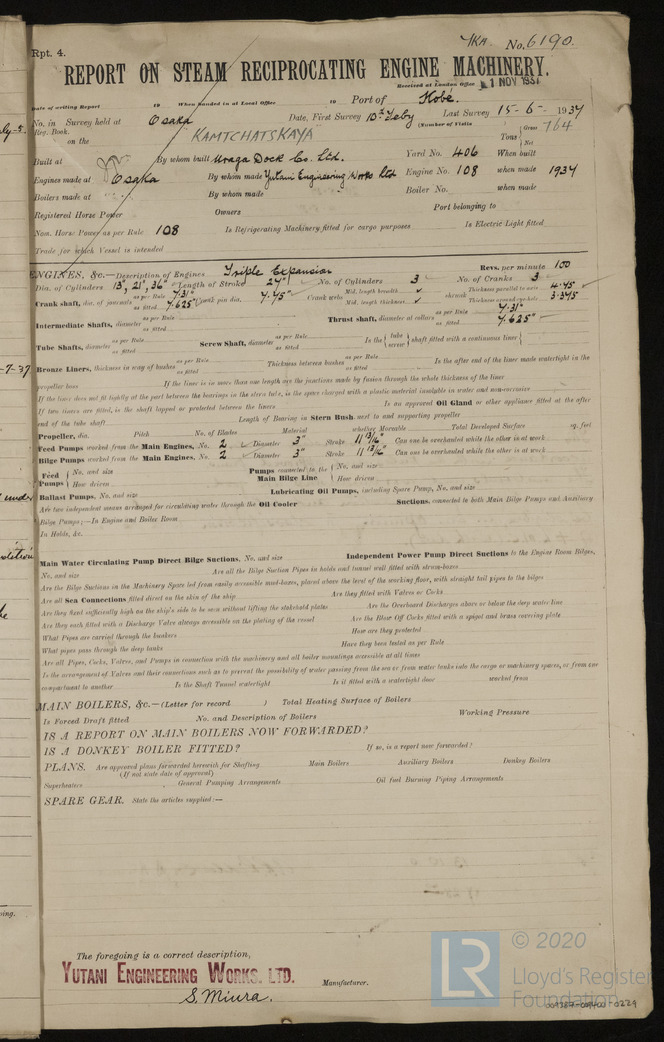 Rpt. 4.
JKA. No. 6190.
REPORT ON STEAM RECIPROCATING ENGINE MACHINERY.
Received at London Office 1 NOV 1937
Date of writing Report 19 When handed in at Local Office 19 Port of Kobe.
No. in Survey held at Osaka Date, First Survey 10th Feby Last Survey 15-6- 1937
Reg. Book. (Number of Visits
on the KAMTCHATSKAYA Tons { Gross 764
Net
Built at By whom built Uraga Dock Co. Ltd. Yard No. 406 When built
Engines made at Osaka By whom made Yutani Engineering Works Ltd Engine No. 108 when made 1937
Boilers made at By whom made Boiler No. when made
Registered Horse Power Owners Port belonging to
Nom. Horse Power as per Rule 108 Is Refrigerating Machinery fitted for cargo purposes Is Electric Light fitted
Trade for which Vessel is intended
ENGINES, &c.—Description of Engines Triple Expansion Revs. per minute 100
Dia. of Cylinders 13", 21", 36" Length of Stroke 24" No. of Cylinders 3 No. of Cranks 3
Crank shaft, dia. of journals as per Rule 7.31" as fitted 7.625" Crank pin dia. 7.75" Crank webs Mid. length breadth Mid. length thickness shrunk Thickness parallel to axis 4.75" Thickness around eyeholes 3.375
Intermediate Shafts, diameter as per Rule as fitted Thrust shaft, diameter at collars as per Rule 7.31" as fitted 7.625"
Tube Shafts, diameter as per Rule as fitted Screw Shaft, diameter as per Rule as fitted Is the { tube screw } shaft fitted with a continuous liner {
Bronze Liners, thickness in way of bushes as per Rule as fitted Thickness between bushes as per Rule as fitted Is the after end of the liner made watertight in the
propeller boss If the liner is in more than one length are the junctions made by fusion through the whole thickness of the liner
If the liner does not fit tightly at the part between the bearings in the stern tube, is the space charged with a plastic material insoluble in water and non-corrosive
If two liners are fitted, is the shaft lapped or protected between the liners Is an approved Oil Gland or other appliance fitted at the after
end of the tube shaft Length of Bearing in Stern Bush next to and supporting propeller
Propeller, dia. Pitch No. of Blades Material whether Moveable Total Developed Surface sq. feet
Feed Pumps worked from the Main Engines, No. 2 Diameter 3" Stroke 11 13/16" Can one be overhauled while the other is at work
Bilge Pumps worked from the Main Engines, No. 2 Diameter 3" Stroke 11 13/16" Can one be overhauled while the other is at work
Feed Pumps { No. and size How driven Pumps connected to the Main Bilge Line { No. and size How driven
Ballast Pumps, No. and size Lubricating Oil Pumps, including Spare Pump, No. and size
Are two independent means arranged for circulating water through the Oil Cooler Suctions, connected to both Main Bilge Pumps and Auxiliary
Bilge Pumps;—In Engine and Boiler Room
In Holds, &c.
Main Water Circulating Pump Direct Bilge Suctions, No. and size Independent Power Pump Direct Suctions to the Engine Room Bilges,
No. and size Are all the Bilge Suction Pipes in holds and tunnel well fitted with strum-boxes
Are the Bilge Suctions in the Machinery Space led from easily accessible mud-boxes, placed above the level of the working floor, with straight tail pipes to the bilges
Are all Sea Connections fitted direct on the skin of the ship Are they fitted with Valves or Cocks
Are they fixed sufficiently high on the ship's side to be seen without lifting the stokehold plates Are the Overboard Discharges above or below the deep water line
Are they each fitted with a Discharge Valve always accessible on the plating of the vessel Are the Blow Off Cocks fitted with a spigot and brass covering plate
What Pipes are carried through the bunkers How are they protected
What pipes pass through the deep tanks Have they been tested as per Rule
Are all Pipes, Cocks, Valves, and Pumps in connection with the machinery and all boiler mountings accessible at all times
Is the arrangement of Valves and their connections such as to prevent the possibility of water passing from the sea or from water tanks into the cargo or machinery spaces, or from one
compartment to another Is the Shaft Tunnel watertight Is it fitted with a watertight door worked from
MAIN BOILERS, &c.—(Letter for record ) Total Heating Surface of Boilers
Is Forced Draft fitted No. and Description of Boilers Working Pressure
IS A REPORT ON MAIN BOILERS NOW FORWARDED?
IS A DONKEY BOILER FITTED? If so, is a report now forwarded?
PLANS. Are approved plans forwarded herewith for Shafting Main Boilers Auxiliary Boilers Donkey Boilers
(If not state date of approval)
Superheaters General Pumping Arrangements Oil fuel Burning Piping Arrangements
SPARE GEAR. State the articles supplied:—
The foregoing is a correct description,
YUTANI ENGINEERING WORKS. LTD.
S. Miura. Manufacturer.
LR © 2020
Lloyd's Register
Foundation